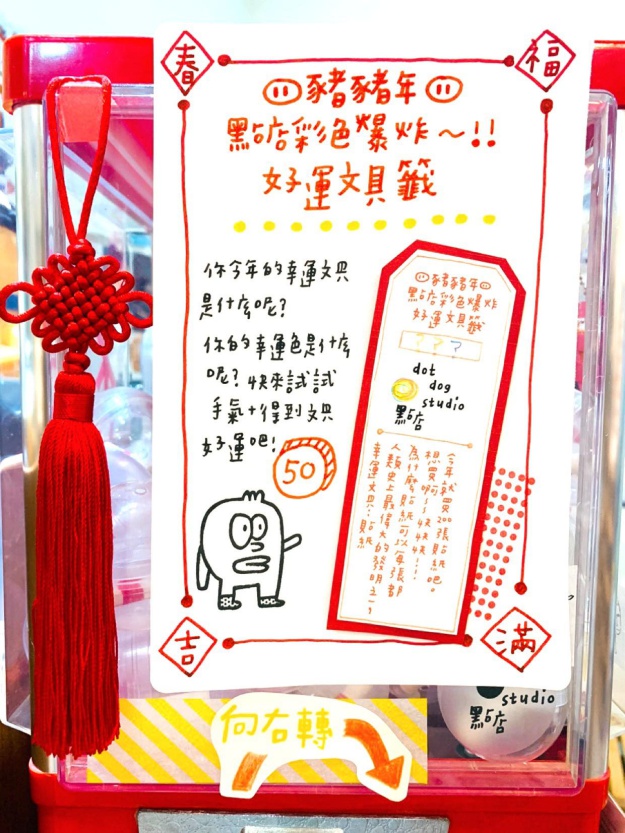 春
福
豬豬年
點店彩色爆炸～!!
好運文具籤
你今年的幸運文具
是什麼呢?
你的幸運色是什麼
呢?快來試試
手氣+得到文具
好運吧!
50
豬豬年
點店彩色爆炸
好運文具籤
? ? ?
dot
dog
studio
點店
今年就買200張貼紙吧。
想買啊~快快快!!!
為什麼貼紙可以每張都
人類史上最偉大的發明之一,
幸運文具:貼紙
吉
滿
studio
點店
向右轉